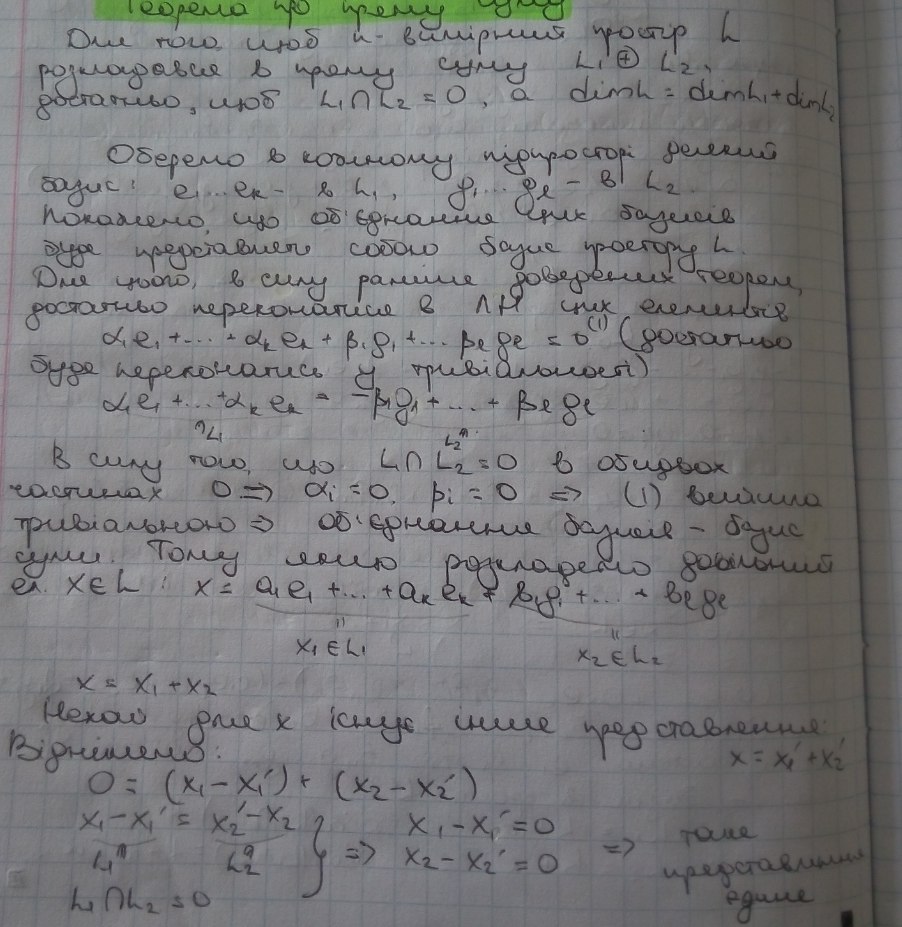 Теорема про пряму суму
Для того, щоб n-вимірний простір L
розкладався в пряму суму L₁ ⊕ L₂,
достатньо, щоб L₁∩L₂ = 0, а dimL = dimL₁+dimL₂
Оберемо в кожному підпросторі деякий
базис: e₁...eₖ - в L₁, g₁...gₑ - в L₂.
Покажемо, що об'єднання цих базисів
буде представляти собою базис простору L.
Для цього, в силу раніше доведених теорем,
достатньо переконатися в ЛН цих елементів
α₁e₁+...+αₖeₖ+β₁g₁+...βₑgₑ = 0⁽¹⁾ (достатньо
буде переконатись у тривіальності)
α₁e₁+...+αₖeₖ = -β₁g₁+...+βₑgₑ
∈L₁ ∈L₂
В силу того, що L∩L₂=0 в обидвох
частинах 0 => αᵢ=0, βᵢ=0 => (1) вийшла
тривіальною => об'єднання базисів - базис
суми. Тому якщо розкладемо довільний
ел. x∈L: x = a₁e₁+...+aₖeₖ+b₁g₁+...+bₑgₑ
x₁∈L₁ x₂∈L₂
x = x₁+x₂
Нехай для x існує інше представлення:
x = x₁'+x₂'
Віднімемо:
0 = (x₁-x₁')+(x₂-x₂')
x₁-x₁' = x₂'-x₂ } => x₁-x₁'=0 => таке
L₁ L₂ x₂-x₂'=0 представлення
L₁∩L₂=0 єдине